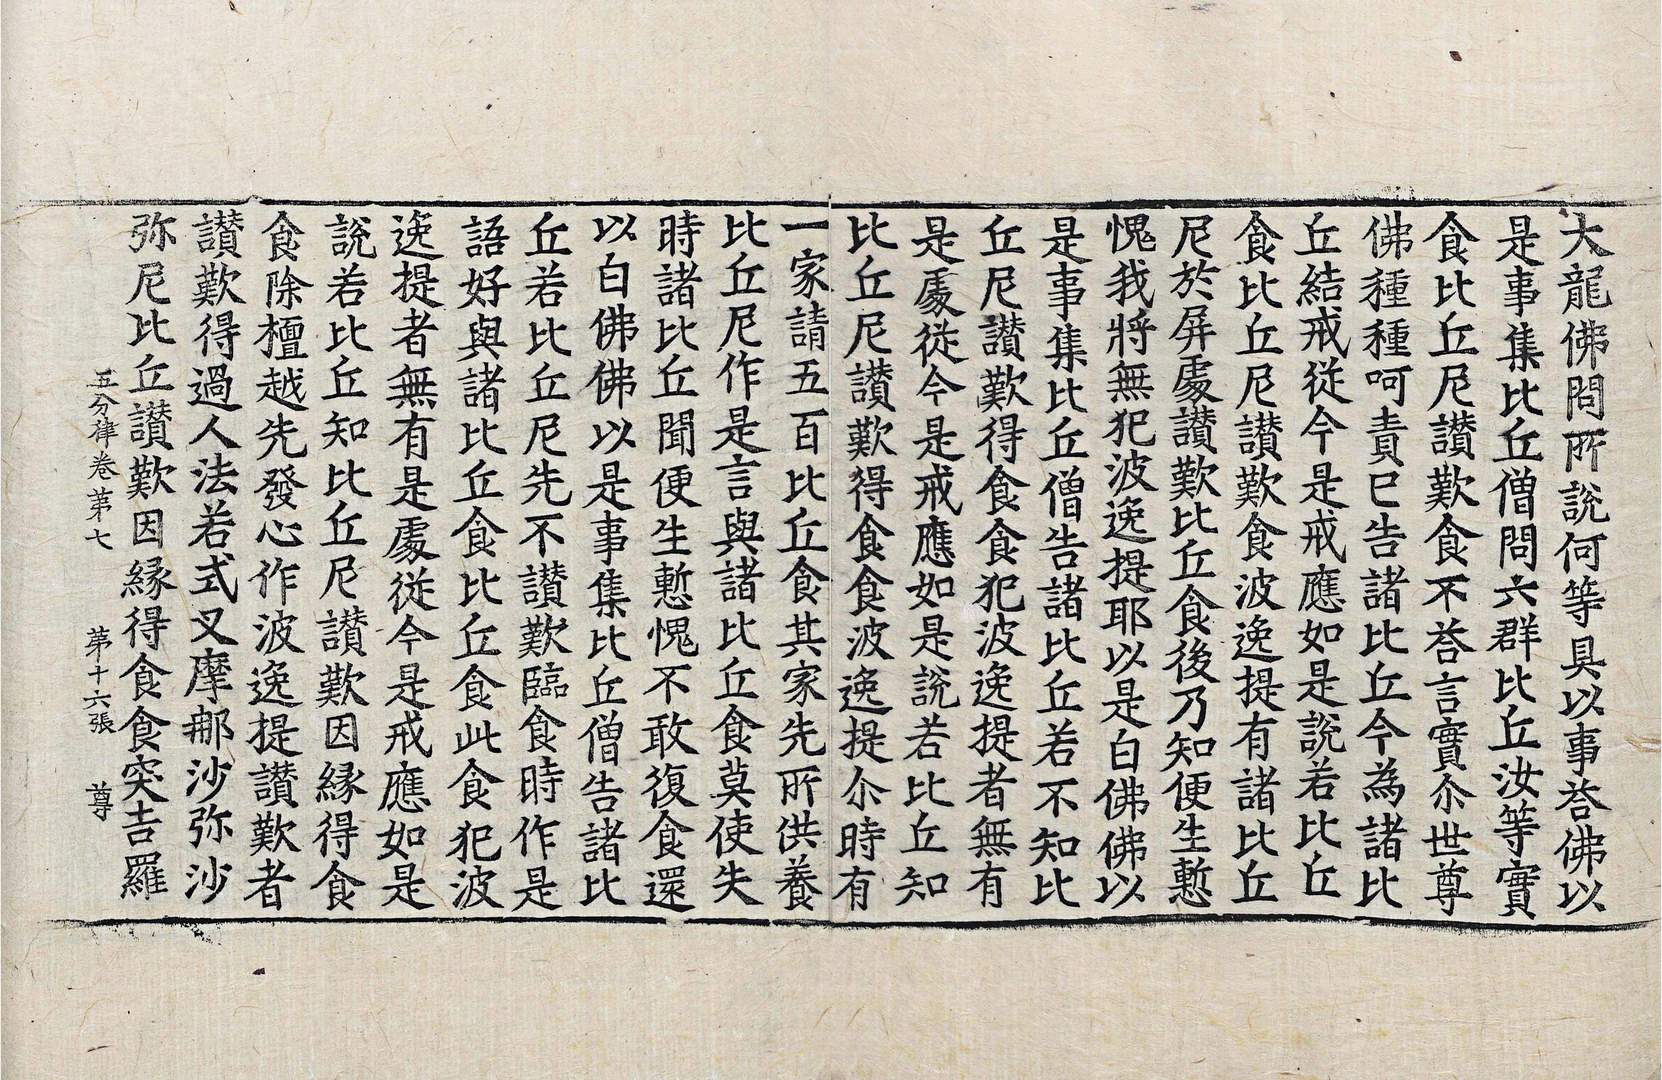 大龍佛問所說何等具以事荅佛以
是事集比丘僧問六群比丘汝等實
食比丘尼讃歎食不荅言實尒世尊
佛種種呵責已告諸比丘今為諸比
丘結戒從今是戒應如是說若比丘
食比丘尼讃歎食波逸提有諸比丘
尼於屏處讃歎比丘食後乃知便生慙
愧我將無犯波逸提耶以是白佛佛以
是事集比丘僧告諸比丘若不知比
丘尼讃歎得食食犯波逸提者無有
是處從今是戒應如是說若比丘知
比丘尼讃歎得食食波逸提尒時有
一家請五百比丘食其家先所供養
比丘尼作是言與諸比丘食莫使失
時諸比丘聞便生慙愧不敢復食還
以白佛佛以是事集比丘僧告諸比
丘若比丘尼先不讃歎臨食時作是
語好與諸比丘食比丘食此食犯波
逸提者無有是處從今是戒應如是
說若比丘知比丘尼讃歎因縁得食
食除檀越先發心作波逸提讃歎者
讃歎得過人法若式叉摩那沙弥沙
弥尼比丘讃歎因縁得食食突吉羅
五分律卷第七 第十六張 尊